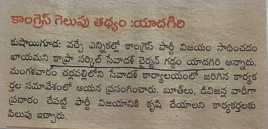 కాంగ్రెస్ గెలుపు తథ్యం :యాదగిరి
కుషాయిగూడ: వచ్చే ఎన్నికల్లో కాంగ్రెస్ పార్టీ విజయం సాధించడం
ఖాయమని కాప్రా సర్కిల్ సేవాదళ్ చైర్మన్ గడ్డం యాదగిరి అన్నారు.
మంగళవారం చర్లపల్లిలోని సేవాదళ్ కార్యాలయంలో జరిగిన కార్యక
ర్తల సమావేశంలో ఆయన ప్రసంగించారు. బూత్‌లు, డివిజన్ల వారీగా
ప్రచారం చేపట్టి పార్టీ విజయానికి కృషి చేయాలని కార్యకర్తలకు
పిలుపు ఇచ్చారు.